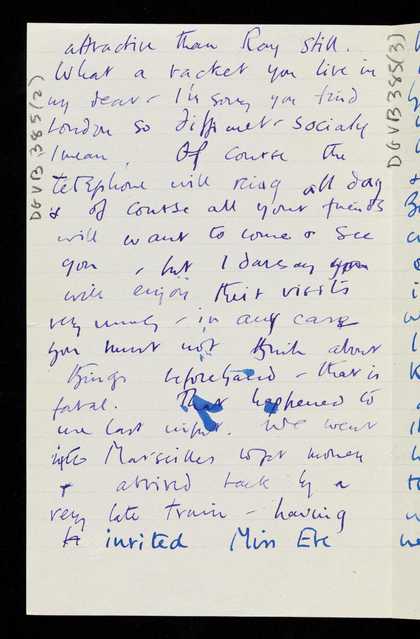 attractive than Ray still.
What a racket you live in
my dear - I'm sorry you find
London so difficult - socially
I mean. Of course the
telephone will ring all day
& of course all your friends
will want to come & see
you, but I daresay you
will enjoy their visits
very much - in any case
you must not think about
things beforehand - that is
fatal. That happened to
me last night. We went
into Marseilles  money
& arrived back by a
very late train - having
invited Miss Eve
DGVB 385(2)
DGVB 385(3)